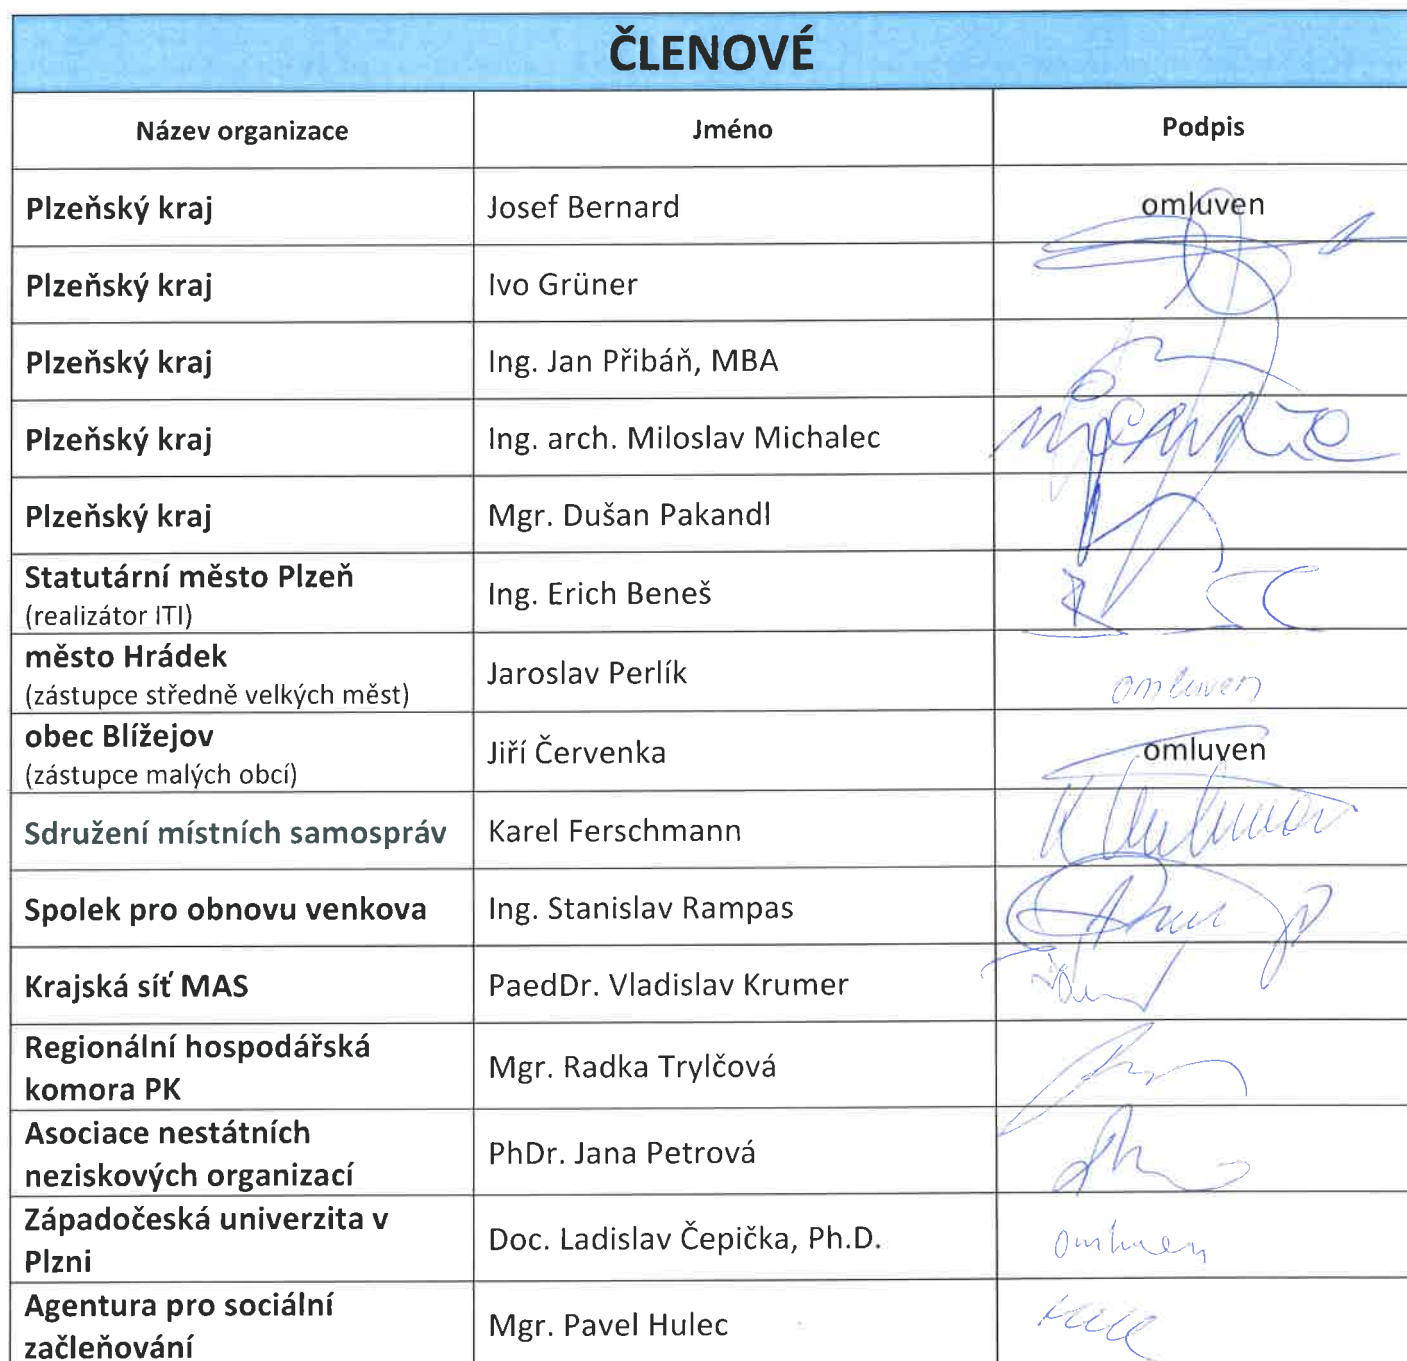 ČLENOVÉ
Název organizace Jméno Podpis
Plzeňský kraj Josef Bernard omluven
Plzeňský kraj Ivo Grüner
Plzeňský kraj Ing. Jan Přibáň, MBA
Plzeňský kraj Ing. arch. Miloslav Michalec
Plzeňský kraj Mgr. Dušan Pakandl
Statutární město Plzeň
(realizátor ITI) Ing. Erich Beneš
město Hrádek
(zástupce středně velkých měst) Jaroslav Perlík omluven
obec Blížejov
(zástupce malých obcí) Jiří Červenka omluven
Sdružení místních samospráv Karel Ferschmann
Spolek pro obnovu venkova Ing. Stanislav Rampas
Krajská síť MAS PaedDr. Vladislav Krumer
Regionální hospodářská
komora PK Mgr. Radka Trylčová
Asociace nestátních
neziskových organizací PhDr. Jana Petrová
Západočeská univerzita v
Plzni Doc. Ladislav Čepička, Ph.D. omluven
Agentura pro sociální
začleňování Mgr. Pavel Hulec